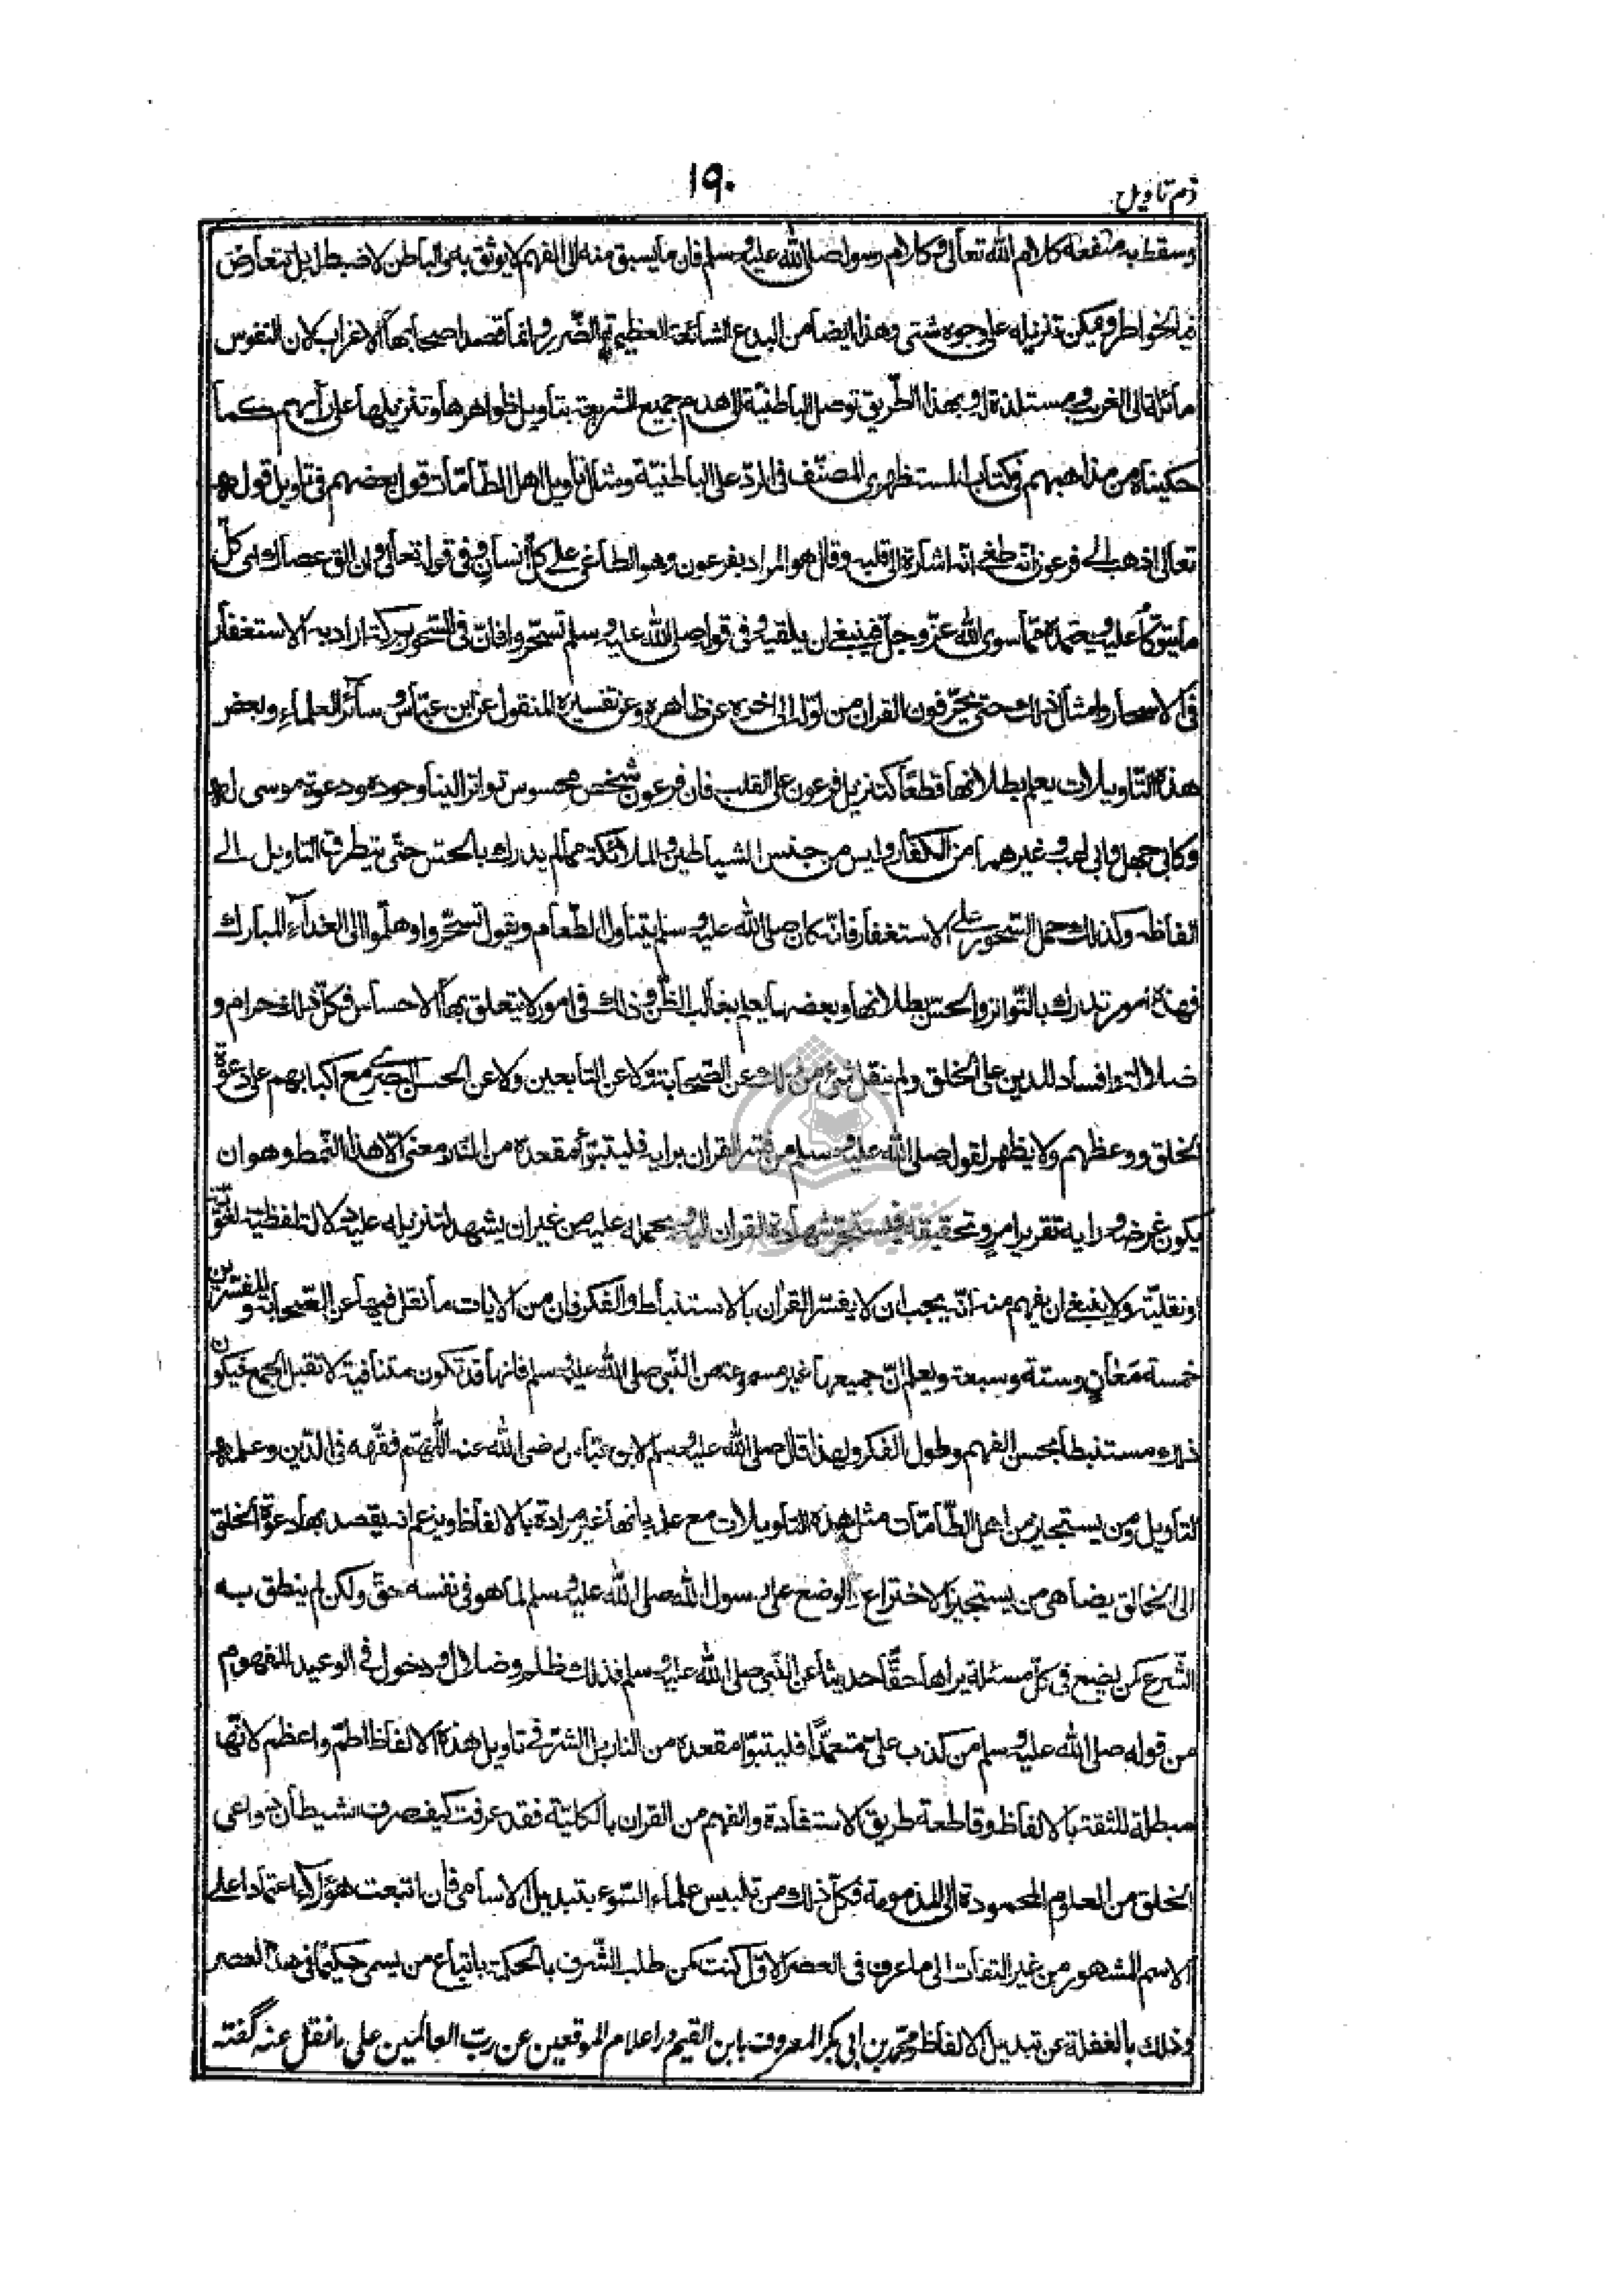 ۱۹۰
ذم تاویل
وسقط به منفعة كلام الله تعالى وكلام رسوله صلى الله عليه وسلم فان ما يسبق منه الى الفهم لا يوثق به والباطن لا ضبط له بل تتعارض
فيه الخواطر ويمكن تنزيله على وجوه شتى وهذا ايضا من البدع الشائعة العظيمة الضرر وانما قصد اصحابها الاغراب لان النفوس
مائلة الى الغريب ومستلذة له وبهذا الطّريق توصل الباطنيّة الى هدم جميع الشريعة بتاويل ظواهرها وتنزيلها على رأيهم كما
حكيناه من مذاهبهم فى كتاب المستظهرى المصنّف فى الردّ على الباطنيّة ومثال تأويل اهل الطّامّات قول بعضهم فى تاويل قوله
تعالى اذهب الى فرعون انه طغى انه اشارة الى قلبه وقال هو المراد بفرعون وهو الطاغى على كلّ انسانٍ وفى قوله تعالى وان الق عصاك اى كلّ
ما يتوكّأ عليه ويعتمده ممّا سوى الله عزّ وجلّ فينبغى ان يلقيه وفى قوله صلى الله عليه وسلم تسحّروا فانّ فى السّحور بركة اراد به الاستغفار
فى الاسحار وامثال ذلك حتى يحرّفون القران من اوّله الى اخره عن ظاهره وعن تفسيره المنقول عن ابن عبّاس وسائر العلماء وبعض
هذه التّاويلات يعلم بطلانها قطعًا كتنزيل فرعون على القلب فان فرعون شخص محسوس تواتر الينا وجوده ودعوة موسى له
وكابى جهل وابى لهب وغيرهما من الكفّار وليس من جنس الشياطين والملائكة ممّا لم يدرك بالحسّ حتّى يتطرق التاويل الى
الفاظه وكذلك حمل السّحور على الاستغفار فانّه كان صلى الله عليه وسلم يتناول الطّعام ويقول تسحّروا وهلمّوا الى الغداء المبارك
فهذه امور تدرك بالتّواتر والحسّ بطلانها وبعضها يعلم بغالب الظّنّ وذلك فى امور لا يتعلق بها الاحساس فكلّ ذلك حرام و
ضلالة وافساد للدين على الخلق ولم ينقل شئ من ذلك عن الصّحابة ولا عن التابعين ولا عن الحسن البصرى مع اكبابهم على دعوة
الخلق ووعظهم ولا يظهر لقوله صلى الله عليه وسلم من فسّر القران برايه فليتبوّأ مقعده من النّار معنى الّا هذا النّمط وهو ان
يكون غرضه ورايه تقرير امرٍ وتحقيقه فيستجرّ شهادة القران اليه ويحمله عليه من غير ان يشهد لتنزيله عليه دلالة لفظيّة لغويّة
او نقليّة ولا ينبغى ان يفهم منه انّه يجب ان لا يفسّر القرآن بالاستنباط والفكر فان من الايات ما نقل فيها عن الصّحابة والمفسّرين
خمسة مَعَانٍ وستة وسبعة ويعلم انّ جميعها غير مسموعة من النّبى صلى الله عليه وسلم فانها قد تكون متنافية لا تقبل الجمع فيكون
ذلك مستنبطاً بحسن الفهم وطول الفكر ولهذا قال صلى الله عليه وسلم لابن عبّاس رضى الله عنه اللّهمّ فقّهه فى الدّين وعلّمه
التأويل ومن يستجيز من اهل الطّامّات مثل هذه التاويلات مع علمه بانها غير مرادة بالالفاظ ويزعم انه يقصد بها دعوة الخلق
الى الخالق يضاهى من يستجيز الاختراع والوضع على رسول الله صلى الله عليه وسلم لما هو فى نفسه حقّ ولكن لم ينطق به
الشّرع كمن يضع فى كلّ مسئلة يراها حقًّا حديثًا عن النّبى صلى الله عليه وسلم فذلك ظلم وضلال ودخول فى الوعيد المفهوم
من قوله صلى الله عليه وسلم من كذب علىّ متعمّدًا فليتبوّا مقعده من النار بل الشرّ فى تاويل هذه الالفاظ اطمّ واعظم لانّها
مبطلة للثقة بالالفاظ وقاطعة طريق الاستفادة والفهم من القران بالكليّة فقد عرفت كيف صرف الشيطان دواعى
الخلق من العلوم المحمودة الى المذمومة فكلّ ذلك من تلبيس علماء السّوء بتبديل الاسامى فان اتبعت هؤلاء اعتمادا على
الاسم المشهور من غير التفات الى ما عرف فى العصر الاوّل كنت كمن طلب الشّرف بالحكمة باتباع من يسمى حكيمًا فى هذا العصر
وذلك بالغفلة عن تبديل الالفاظ ومحمّد بن ابى بكر المعروف بابن القيم در اعلام الموقعين عن ربّ العالمين على ما نقل عنه گفته